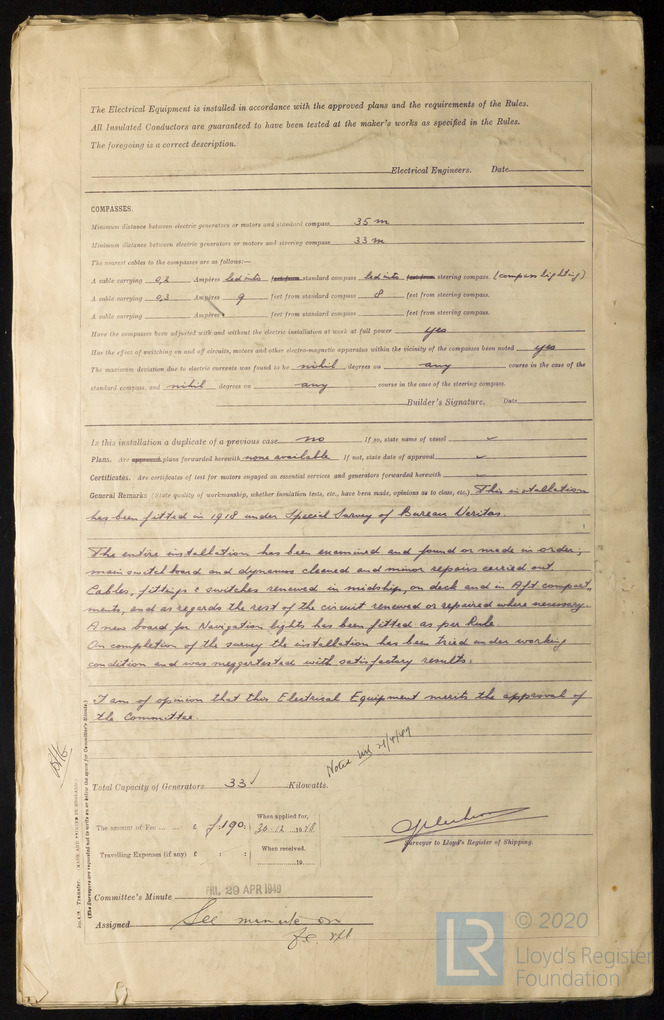 The Electrical Equipment is installed in accordance with the approved plans and the requirements of the Rules.
All Insulated Conductors are guaranteed to have been tested at the maker's works as specified in the Rules.
The foregoing is a correct description.
Electrical Engineers. Date
COMPASSES.
Minimum distance between electric generators or motors and standard compass 35 m
Minimum distance between electric generators or motors and steering compass 33 m
The nearest cables to the compasses are as follows:—
A cable carrying 0,2 Ampères led into feet from standard compass led into feet from steering compass. (compass lighting)
A cable carrying 0,3 Ampères 9 feet from standard compass 8 feet from steering compass.
A cable carrying Ampères feet from standard compass feet from steering compass.
Have the compasses been adjusted with and without the electric installation at work at full power yes
Has the effect of switching on and off circuits, motors and other electro-magnetic apparatus within the vicinity of the compasses been noted yes
The maximum deviation due to electric currents was found to be nihil degrees on any course in the case of the
standard compass, and nihil degrees on any course in the case of the steering compass.
Builder's Signature. Date
Is this installation a duplicate of a previous case no If so, state name of vessel
Plans. Are approved plans forwarded herewith none available If not, state date of approval
Certificates. Are certificates of test for motors engaged on essential services and generators forwarded herewith
General Remarks (State quality of workmanship, whether insulation tests, etc., have been made, opinions as to class, etc.) This installation
has been fitted in 1918 under Special Survey of Bureau Veritas.
The entire installation has been examined and found or made in order;
main switchboard and dynamos cleaned and minor repairs carried out.
Cables, fittings & switches renewed in midship, on deck and in Aft compart,,
ments, and as regards the rest of the circuit renewed or repaired where necessary.
A new board for Navigation lights has been fitted as per Rule
On completion of the survey the installation has been tried under working
condition and was meggertested with satisfactory results.
I am of opinion that this Electrical Equipment merits the approval of
the Committee.
Noted 21/4/49
Total Capacity of Generators 33 Kilowatts.
The amount of Fee £ f.190: When applied for, 30.12.1948
Travelling Expenses (if any) £ : : When received, 19
Surveyor to Lloyd's Register of Shipping.
Committee's Minute FRI. 29 APR 1949
Assigned See minute on
(The Surveyors are requested not to write on or below the space for Committee's Minute.)
(MADE AND PRINTED IN ENGLAND.)
Transfer.
LR
© 2020
Lloyd's Register
Foundation